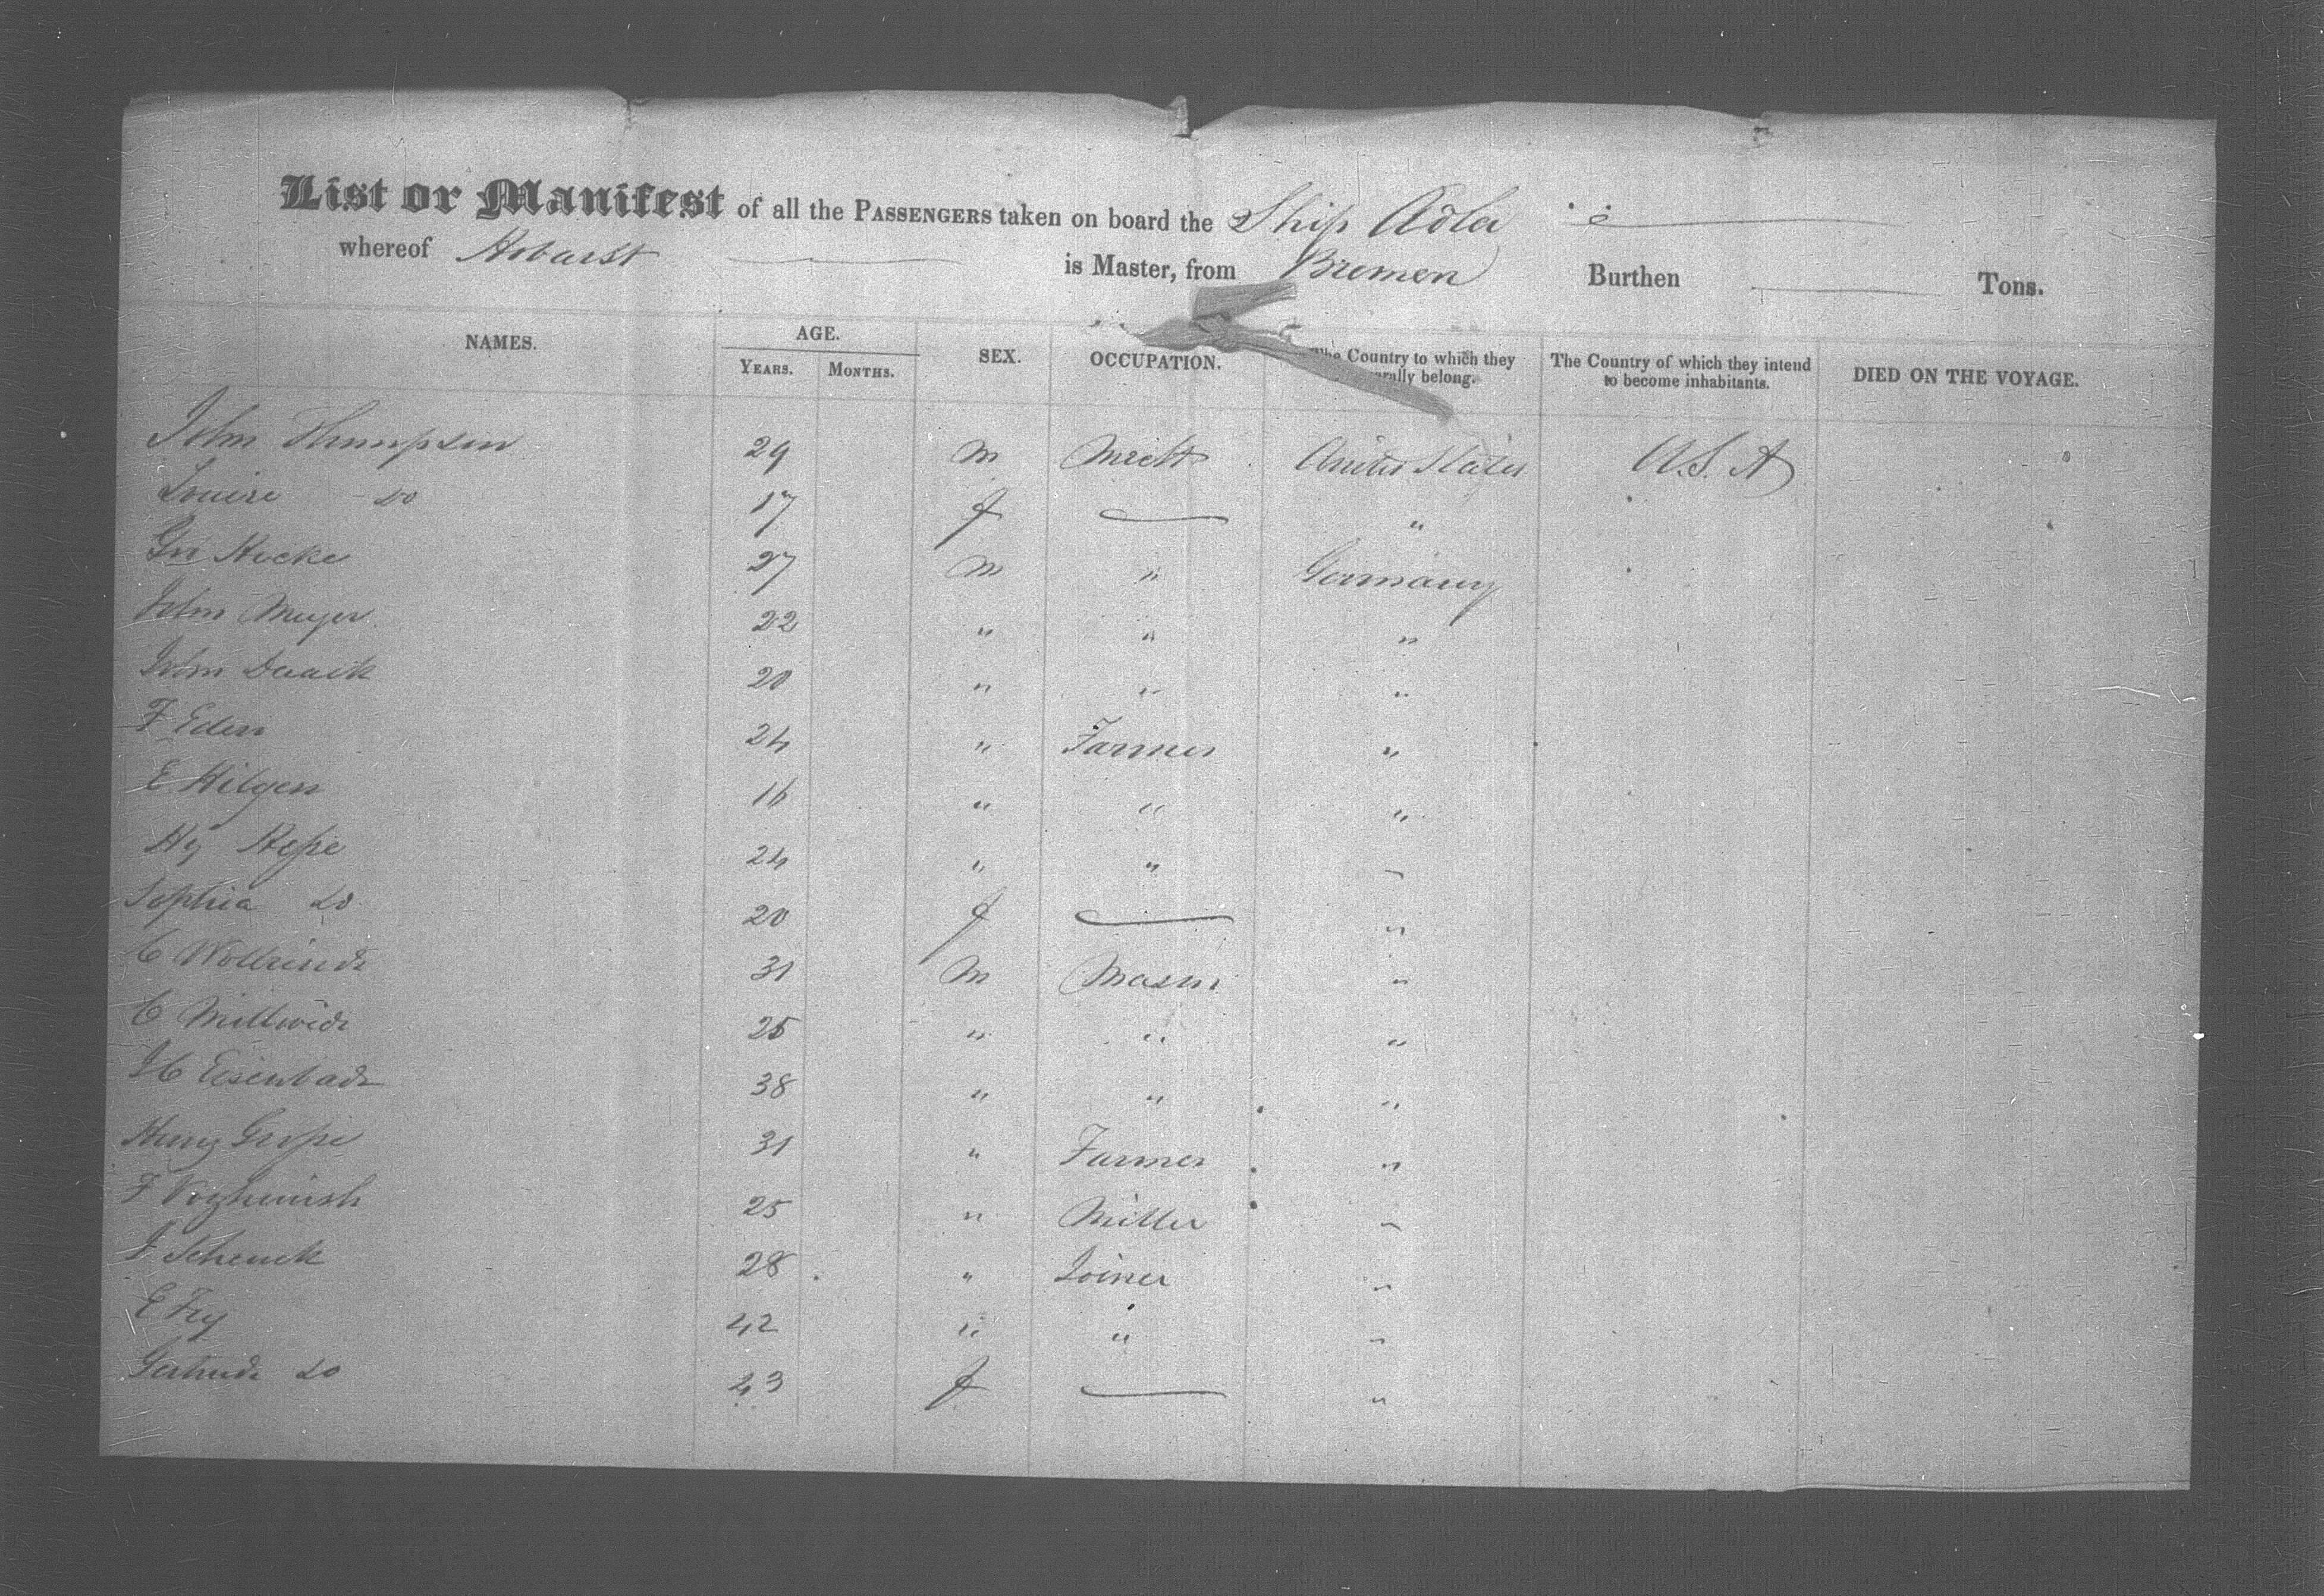 List or Manifest of all the PASSENGERS taken on board the Ship Adler
whereof Hobarst is Master, from Bremen Burthen Tons.
NAMES. AGE. YEARS. MONTHS. SEX. OCCUPATION. The Country to which they severally belong. The Country of which they intend to become inhabitants. DIED ON THE VOYAGE.
John Thumpson 29 m Mercht United States U.S.A
Louise do 17 f "
27 m " Germany
John Meyer 22 " " "
John 20 " " "
F Eden 24 " Farmer "
E Hilgen 16 " " "
Hy Hepe 24 " " "
Sophia do 20 f "
C 31 m Mason "
C 25 " " "
38 " " "
31 " Farmer "
F 25 " Miller "
J Schenck 28 " Joiner "
E Fry 42 " " "
Gertrude do 43 f "